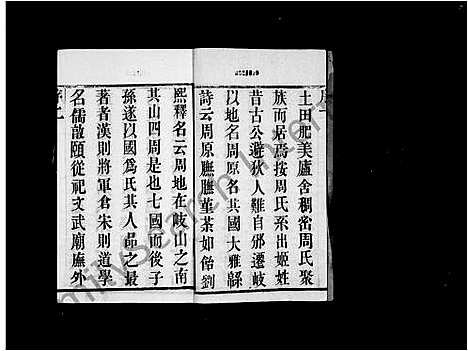 土田肥美廬舍稠密周氏聚
族而居焉按周氏系出姬姓
昔古公避狄人難自邠遷岐
以地名周原名其國大雅緜
詩云周原膴膴菫荼如飴劉
熙釋名云周地在岐山之南
其山四周是也七國而後子
孫遂以國為氏其人品之最
著者漢則將軍倉宋則道學
名儒敦頤從祀文武廟廡外
序二